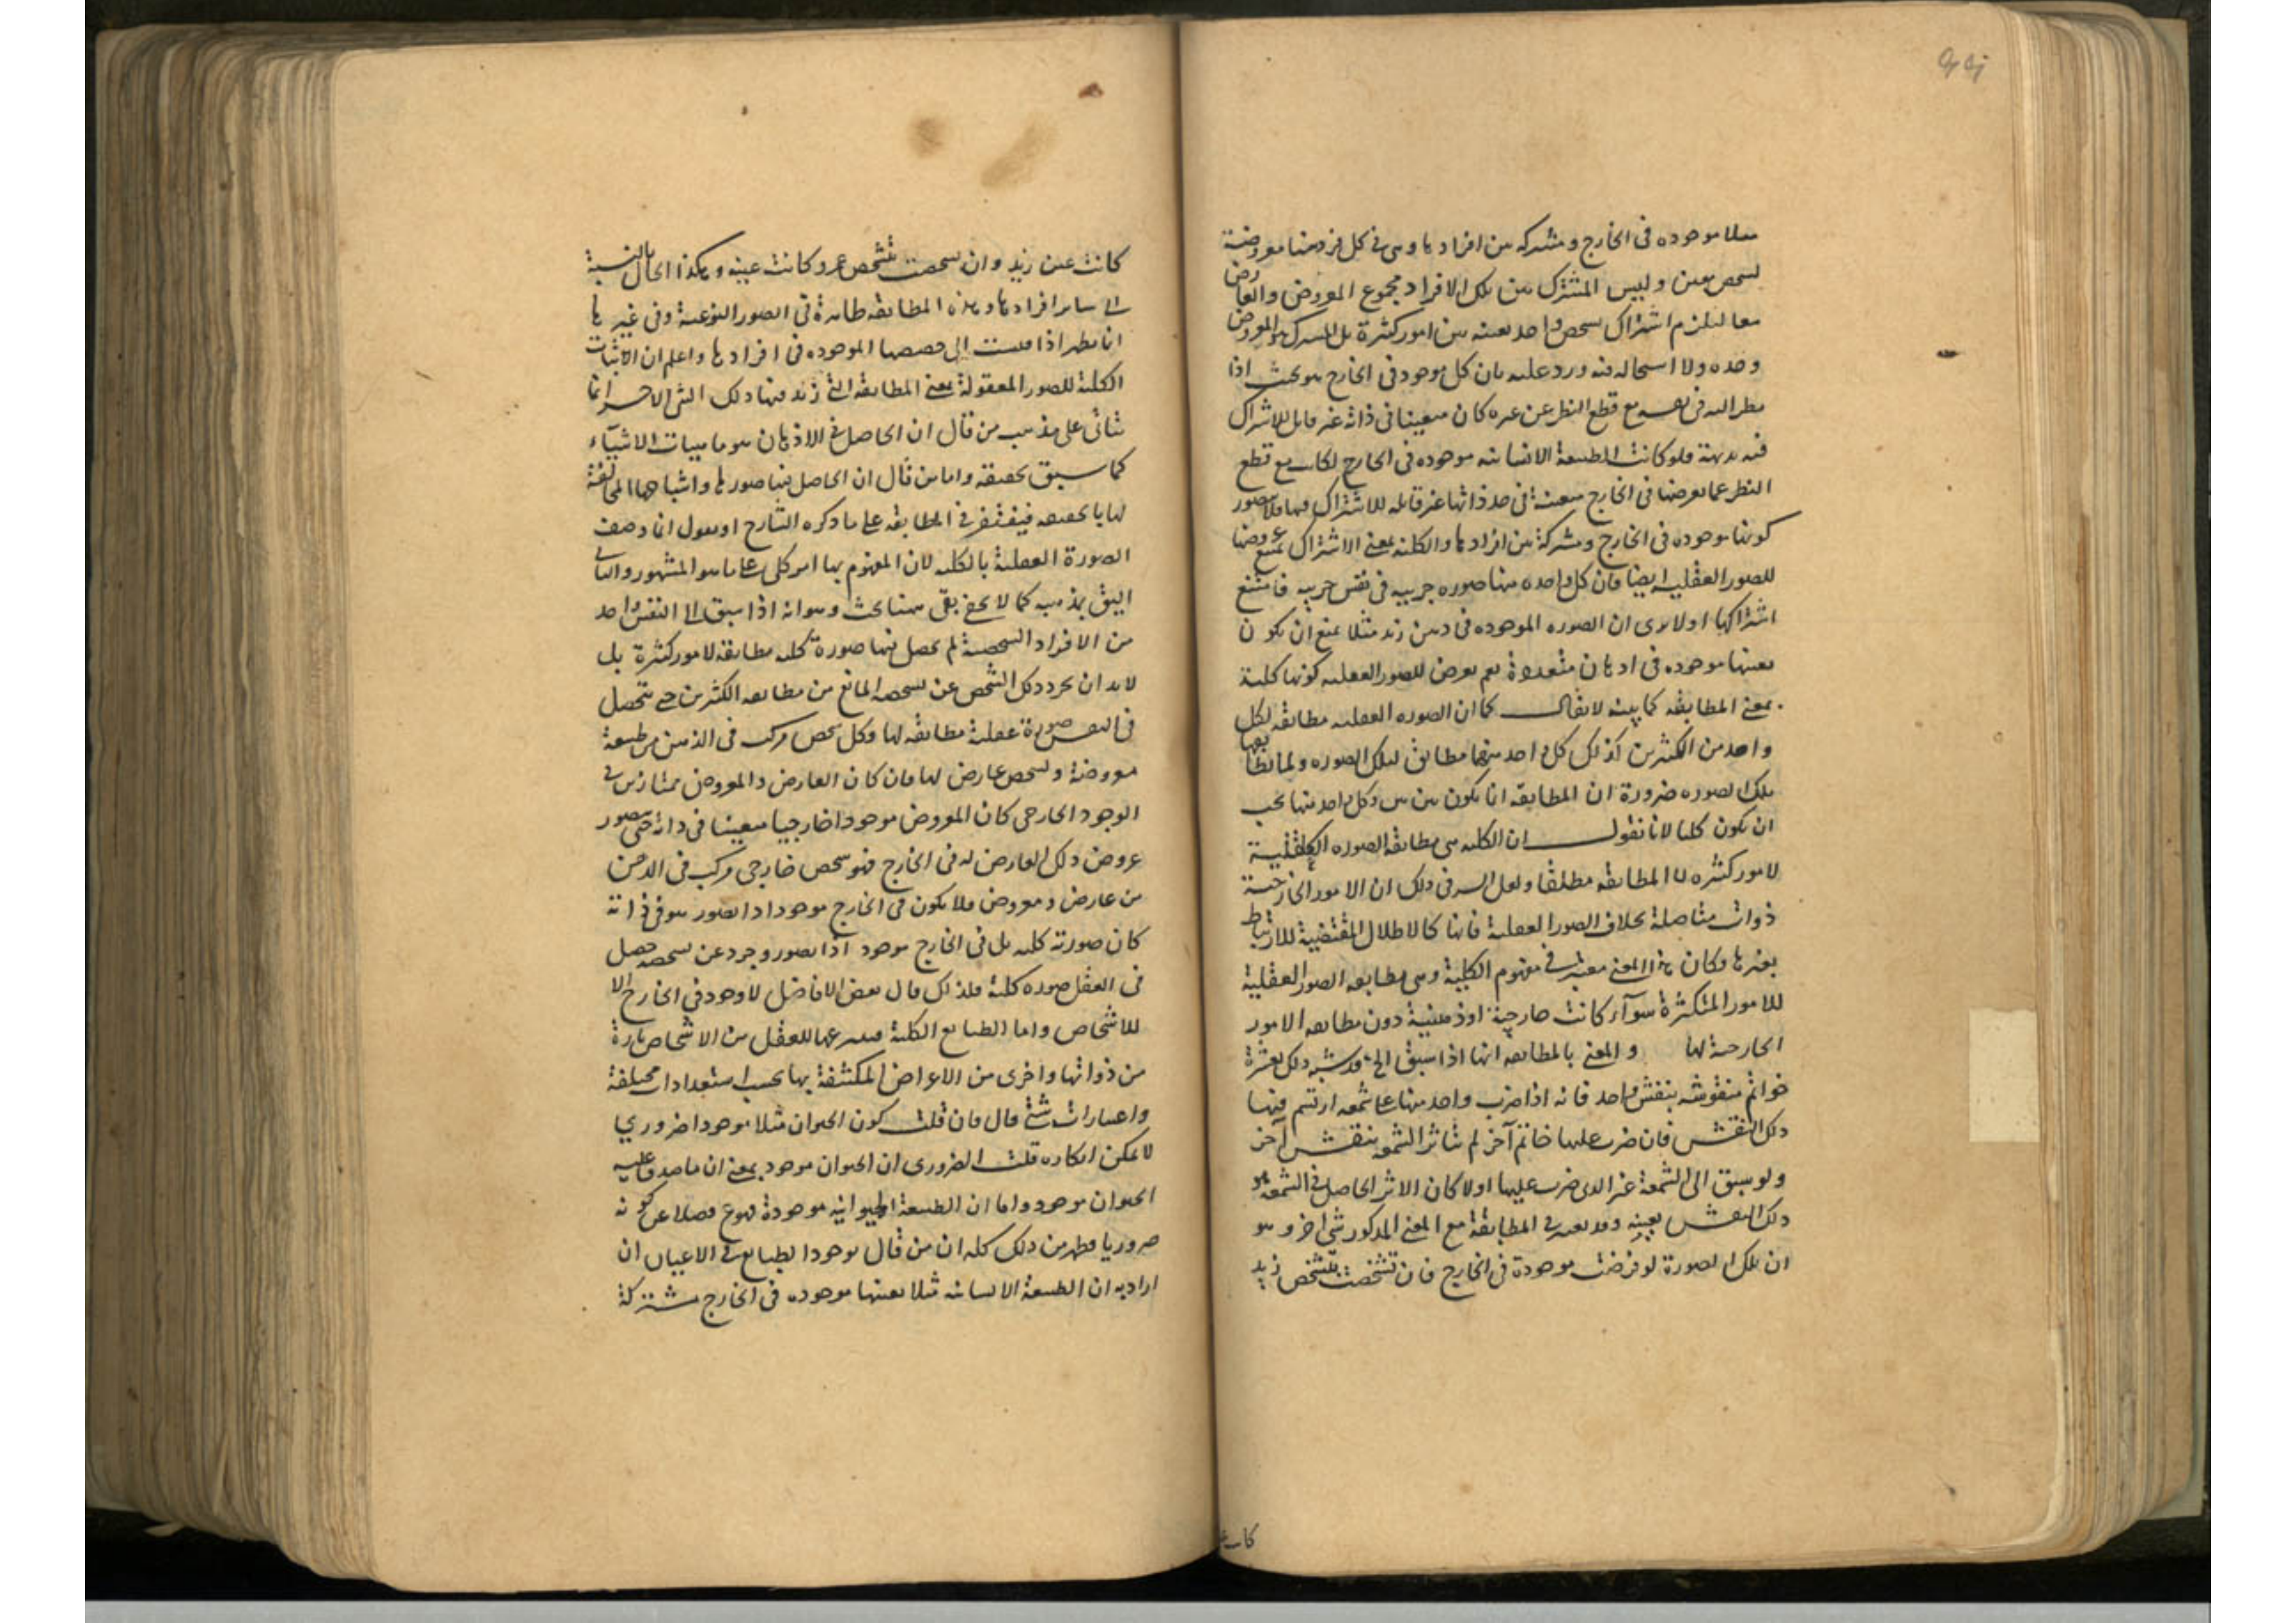 مثلا موجوده فى الخارج ومشتركه بين افرادها وهى فى كل فرد منها معروضة
لتشخص معين وليس المشترك بين تلك الافراد مجموع المعروض والعارض
معا ليلزم اشتراك شخص واحد بعينه بين امور كثيرة بل المشترك هو المعروض
وحده ولا استحاله فيه ورد عليه بان كل موجود فى الخارج هو بحيث اذا
نظر اليه فى نفسه مع قطع النظر عن غيره كان متعينا فى ذاته غير قابل للاشتراك
فيه بديهة فلو كانت الطبيعة الانسانيه موجوده فى الخارج لكانت مع قطع
النظر عما يعرضها فى الخارج متعينة فى حد ذاتها غير قابله للاشتراك فيها فلا يتصور
كونها موجوده فى الخارج ومشتركة بين افرادها والكليه بمعنى الاشتراك يمتنع عروضها
للصور العقليه ايضا فان كل واحده منها صوره جزييه فى نفس جزييه فامتنع
اشتراكها اولا يرى ان الصوره الموجوده فى ذهن زيد مثلا يمتنع ان يكون
بعينها موجوده فى اذهان متعددة نعم يعرض للصور العقليه كونها كلية
بمعنى المطابقه كما بينه لا يقال كما ان الصوره العقليه مطابقه لكل
واحد من الكثيرين كذلك كل واحد منها مطابق لتلك الصوره ولما يطابقها
تلك الصوره ضرورة ان المطابقه انما يكون بين بين وكل واحد منها يجب
ان يكون كليا لانا نقول ان الكليه هى مطابقة الصوره العقلية
لامور كثيره لا المطابقه مطلقا ولعل السر فى ذلك ان الامور الخارجية
ذوات متاصلة بخلاف الصور العقلية فانها كالاظلال المقتضية للارتباط
بغيرها وكان هذا المعنى معتبرا فى مفهوم الكلية وهى مطابقه الصور العقلية
للامور المتكثرة سوآء كانت خارجية او ذهنية دون مطابقه الامور
الخارجية لها والمعنى بالمطابقه انها اذا سبق الخ قد شبه ذلك بعشرة
خواتم منقوشه بنقش واحد فانه اذا ضرب واحد منها على شمعه ارتسم فيها
ذلك النقش فان ضرب عليها خاتم آخر لم تتاثر الشمعه بنقش آخر
ولو سبق الى الشمعة غير الذى ضرب عليها اولا كان الاثر الحاصل فى الشمعه هو
ذلك النقش بعينه وقد يعتبر فى المطابقة مع المعنى المذكور شئ اخر وهو
ان تلك الصورة لو فرضت موجودة فى الخارج فان تشخصت بتشخص زيد
كانت عين
كانت عين زيد وان تشخصت بتشخص عمرو كانت عينه وهكذا الحال بالنسبة
الى ساير افرادها وهذه المطابقه ظاهرة فى الصور النوعية وفى غيرها
انما يظهر اذا قيست الى حصصها الموجوده فى افرادها واعلم ان الاثبات
الكلية للصور المعقولة بمعنى المطابقه التى زيد فيها ذلك الشئ الاخر انما
يتاتى على مذهب من قال ان الحاصل فى الاذهان هو ماهيات الاشيآء
كما سبق تحقيقه واما من قال ان الحاصل فيها صورها واشباحها المخالفة
لها بالحقيقه فيقتصر فى المطابقه على ما ذكره الشارح او يقول انما وصف
الصورة العقلية بالكليه لان المفهوم بها امر كلى على ما هو المشهور والثانى
اليق بمذهبه كما لا يخفى بقى ههنا بحث وهو انه اذا سبق الى النفس واحد
من الافراد الشخصية لم يحصل فيها صورة كليه مطابقه لامور كثيرة بل
لابد ان يجرد ذلك الشخص عن تشخصه المانع من مطابقه الكثيرين حتى يتحصل
فى النفس صورة عقلية مطابقه لها وكل شخص مركب فى الذهن من طبيعة
معروضة وتشخص عارض لها فان كان العارض والمعروض ممتازين فى
الوجود الخارجى كان المعروض موجودا خارجيا متعينا فى ذاته حتى يتصور
عروض ذلك العارض له فى الخارج فهو شخص خارجى مركب فى الذهن
من عارض ومعروض فلا يكون فى الخارج موجود اذا تصور هو فى ذاته
كان صورته كليه بل فى الخارج موجود اذا تصور وجرد عن تشخصه حصل
فى العقل صوره كلية فلذلك قال بعض الافاضل لا وجود فى الخارج الا
للاشخاص واما الطبايع الكلية فينتزعها العقل من الاشخاص تارة
من ذواتها واخرى من الاعراض المكتنفة بها بحسب استعدادات مختلفة
واعتبارات شتى قال فان قلت كون الحيوان مثلا موجودا ضرورى
لا يمكن انكاره قلت الضرورى ان الحيوان موجود بمعنى ان ما صدق عليه
الحيوان موجود واما ان الطبيعة الحيوانيه موجودة فممنوع فضلا عن كونه
ضروريا فظهر من ذلك كله ان من قال بوجود الطبايع فى الاعيان ان
اراد به ان الطبيعة الانسانيه مثلا بعينها موجوده فى الخارج مشتركة